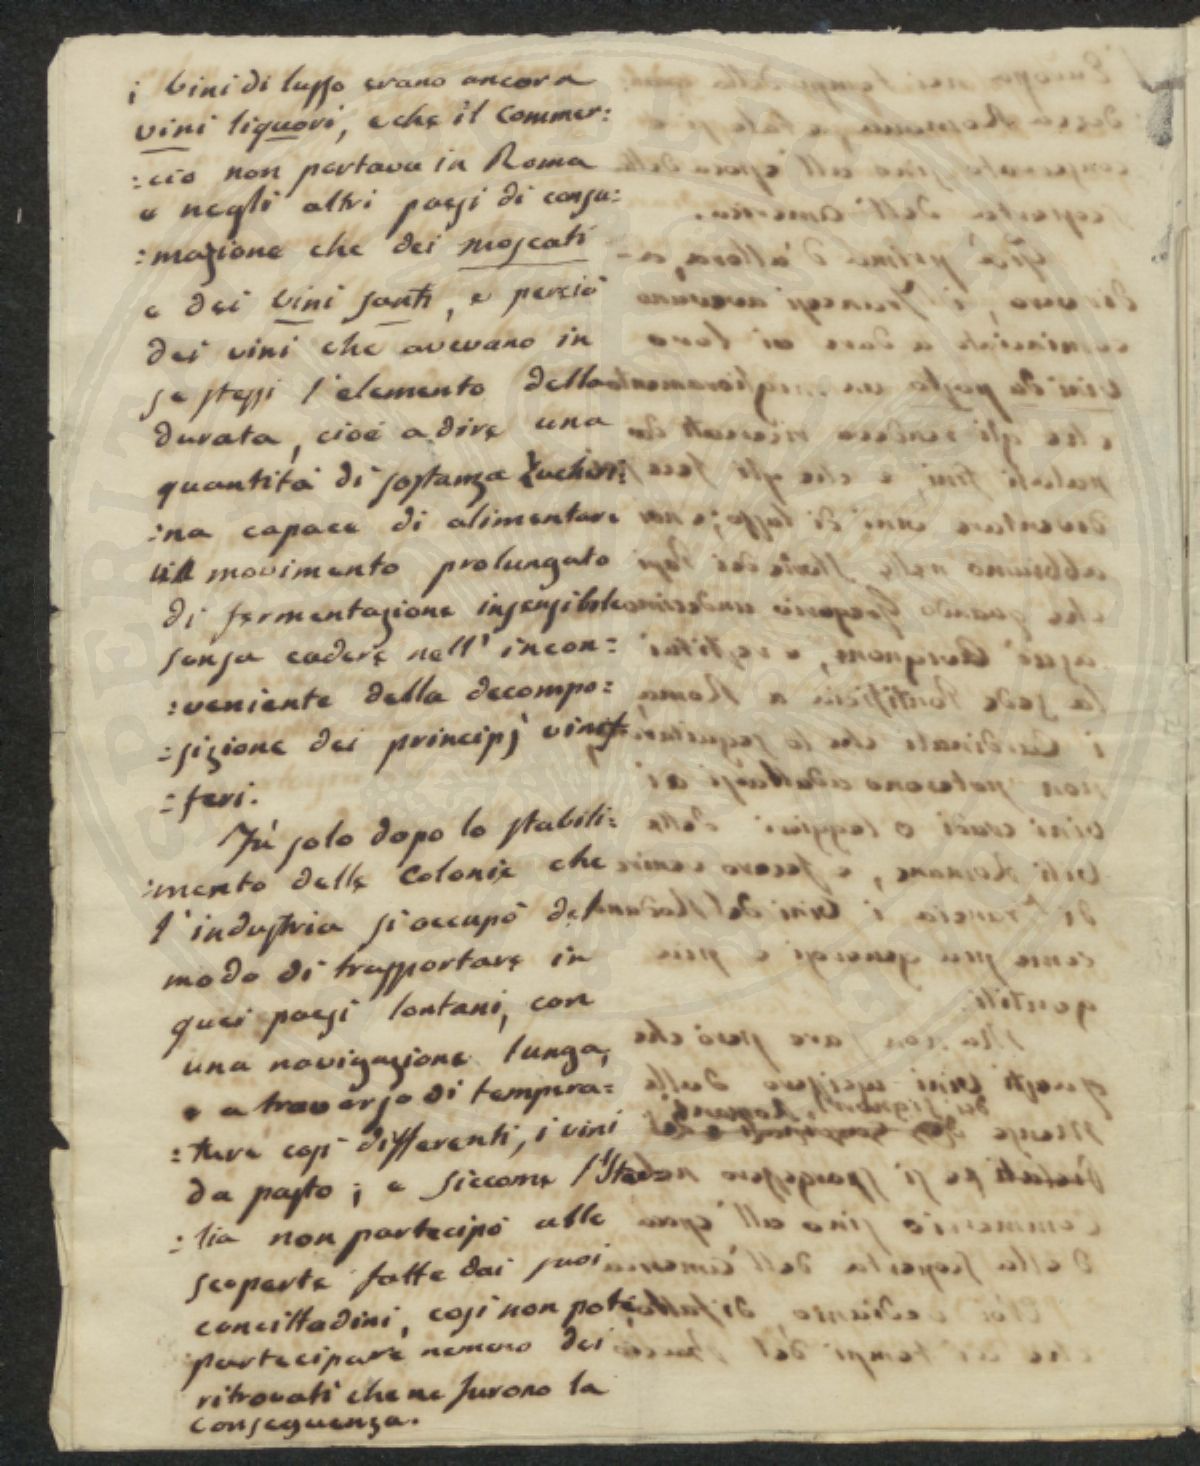 i vini di lusso erano ancora
vini liquori, e che il commer:
:cio non portava in Roma
e negli altri paesi di consu:
:mazione che dei moscati
e dei vini santi, e perciò
dei vini che avevano in
se stessi l'elemento della
durata, cioè a dire una
quantità di sostanza zuccheri:
:na capace di alimentare
un movimento prolungato
di fermentazione insensibile
senza cadere nell'incon:
:veniente della decompo:
:sizione dei principj vinif:
:feri.
Fù solo dopo lo stabili:
:mento delle Colonie che
l'industria si occupò del
modo di trasportare in
quei paesi lontani, con
una navigazione lunga,
e a traverso di tempera:
:ture così differenti, i vini
da pasto; e siccome l'Ita:
:lia non partecipò alle
scoperte fatte dai suoi
concittadini, così non poté
partecipare nemeno dei
ritrovati che ne furono la
conseguenza.